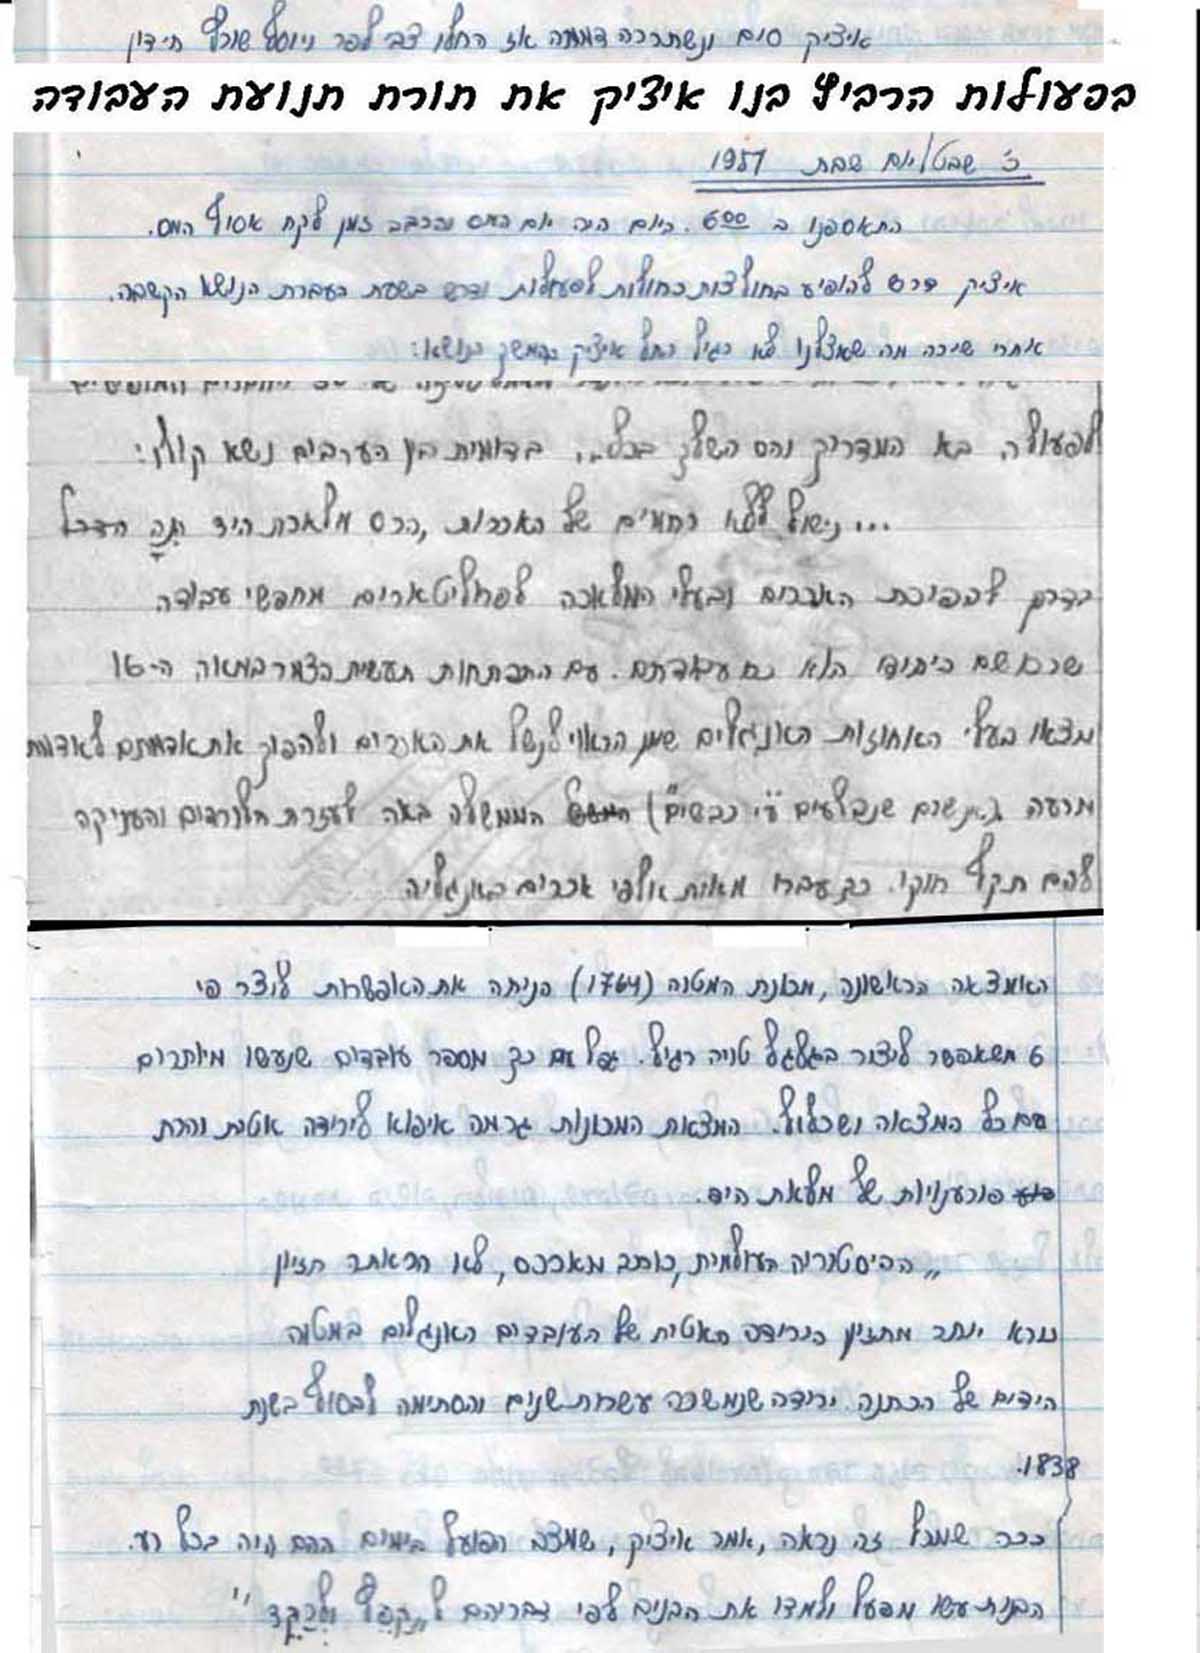 איציק סיים ונשתררה דממה אז החלו צבי לפר ויוסף שורץ חידון
בפעולות הרביץ בנו איציק את תורת תנועת העבודה
כ' שבט/יום שבת 1957
התאספנו ב 6:00. היום היה יום המס והרבה זמן לקח אסוף המס.
איציק דרש להופיע בחולצות כחולות לפעולות ודרש בשעת העברת הנושא הקשבה.
אחרי שירה מה שאצלנו לא רגיל החל איציק בהמשך הנושא:
לפעולה, בא המדריך והס השלך בכל... בדומית בין הערבים נשא קולו:
... נישול ללא רחמים של האכרות, הרס מלאכת היד הנה הדבר
בדרך להפיכת האכרים ובעלי המלאכה לפרוליטארים מחפשי עבודה
שרכושם היחיד הוא כח עבודתם. עם התפתחות תעשית הצמר במאה ה-16
מצאו בעלי האחוזות האנגלים שמן הראוי לנשל את האכרים ולהפוך את אדמתם לאדמת
מרעה (אנשים שנבלעים ע"י כבשים") הממשלה באה לעזרת הלורדים והעניקה
להם תקף חוקי. כך עברו מאות אלפי אכרים באנגליה
האמצאה הראשונה, מכונת המטוה (1764) הניחה את האפשרות ליצר פי
6 משאפשר ליצור בגלגל טויה רגיל. גדל עם כך מספר עובדים שנעשו מיותרים
עם כל המצאה ושכלול. המצאת המכונות גרמה איפוא לירידה אטית והרת
פורענויות של מלאכת היד.
"ההיסטוריה העולמית, כותב מארכס, לא הראתה חזיון
נורא יותר מחזיון הירידה האטית של העובדים האנגלים במטוה
הידים של הכתנה ירידה שנמשכה עשרות שנים והסתימה לבסוף בשנת
1838.
ככה שמכל זה נראה, אמר איציק, שמצב הפועל בימים ההם היה בכל רע.
הבנות עשו מפעל ולמדו את הבנים לפי דבריהם ל"קפל ולרקד"